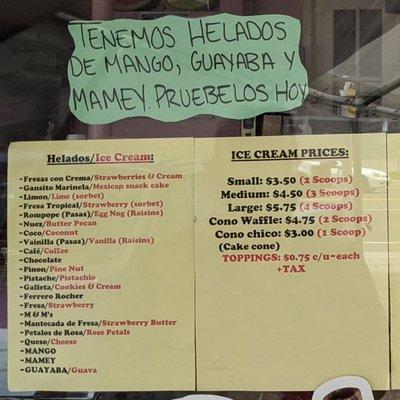 TENEMOS HELADOS
DE MANGO, GUAYABA Y
MAMEY. PRUEBELOS HOY
Helados/Ice Cream:
-Fresas con Crema/Strawberries & Cream
-Gansito Marinela/Mexican snack cake
-Limon/Lime (sorbet)
-Fresa Tropical/Strawberry (sorbet)
-Rompope (Pasas)/Egg Nog (Raisins)
-Nuez/Butter Pecan
-Coco/Coconut
-Vainilla (Pasas)/Vanilla (Raisins)
-Café/Coffee
-Chocolate
-Pinon/Pine Nut
-Pistache/Pistachio
-Galleta/Cookies & Cream
-Ferrero Rocher
-Fresa/Strawberry
-M & M's
-Mantecada de Fresa/Strawberry Butter
-Petalos de Rosa/Rose Petals
-Queso/Cheese
-MANGO
-MAMEY
-GUAYABA/Guava
ICE CREAM PRICES:
Small: $3.50 (2 Scoops)
Medium: $4.50 (3 Scoops)
Large: $5.75 (4 Scoops)
Cono Waffle: $4.75 (2 Scoops)
Cono chico: $3.00 (1 Scoop)
(Cake cone)
TOPPINGS: $0.75 c/u~each
+TAX